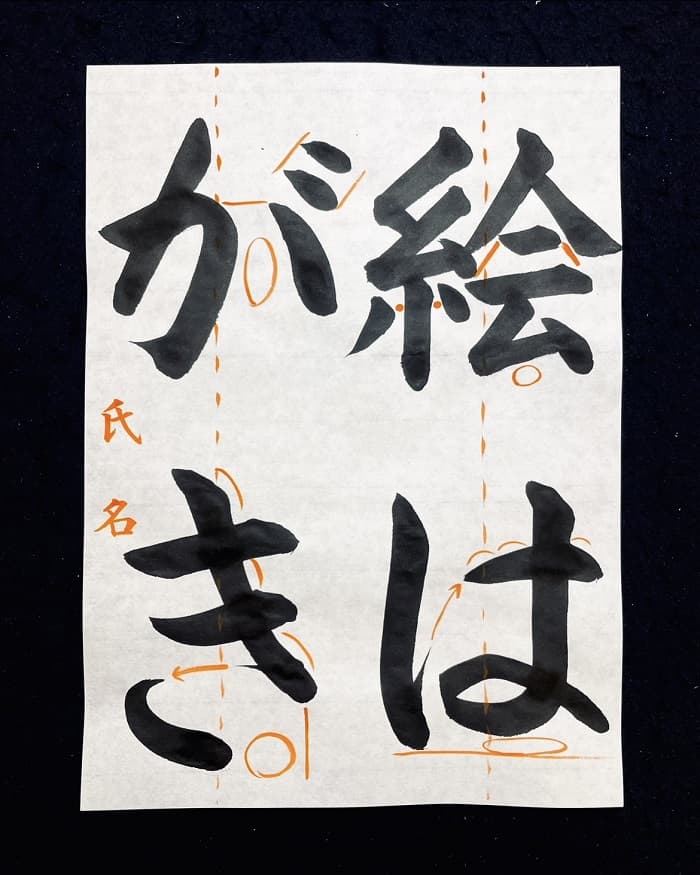 絵は
がき
氏名